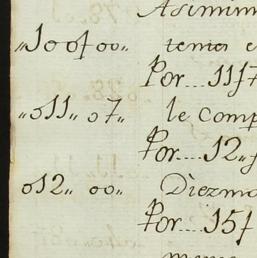 Asimim
„100f00„ tenia e
Por...11f7
„011„07„ le Comp
Por....12„f
012„ 00„ Diezmo
Por....15f